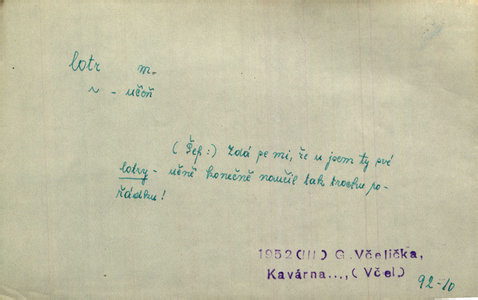 lotr m.
~ - učeň
(Šéf:) Zdá se mi, že u jsem ty své
lotry - učně konečně naučil tak trochu po-
řádku!
1952(III) G. Včelička,
Kavárna..., (Včel)
92-10